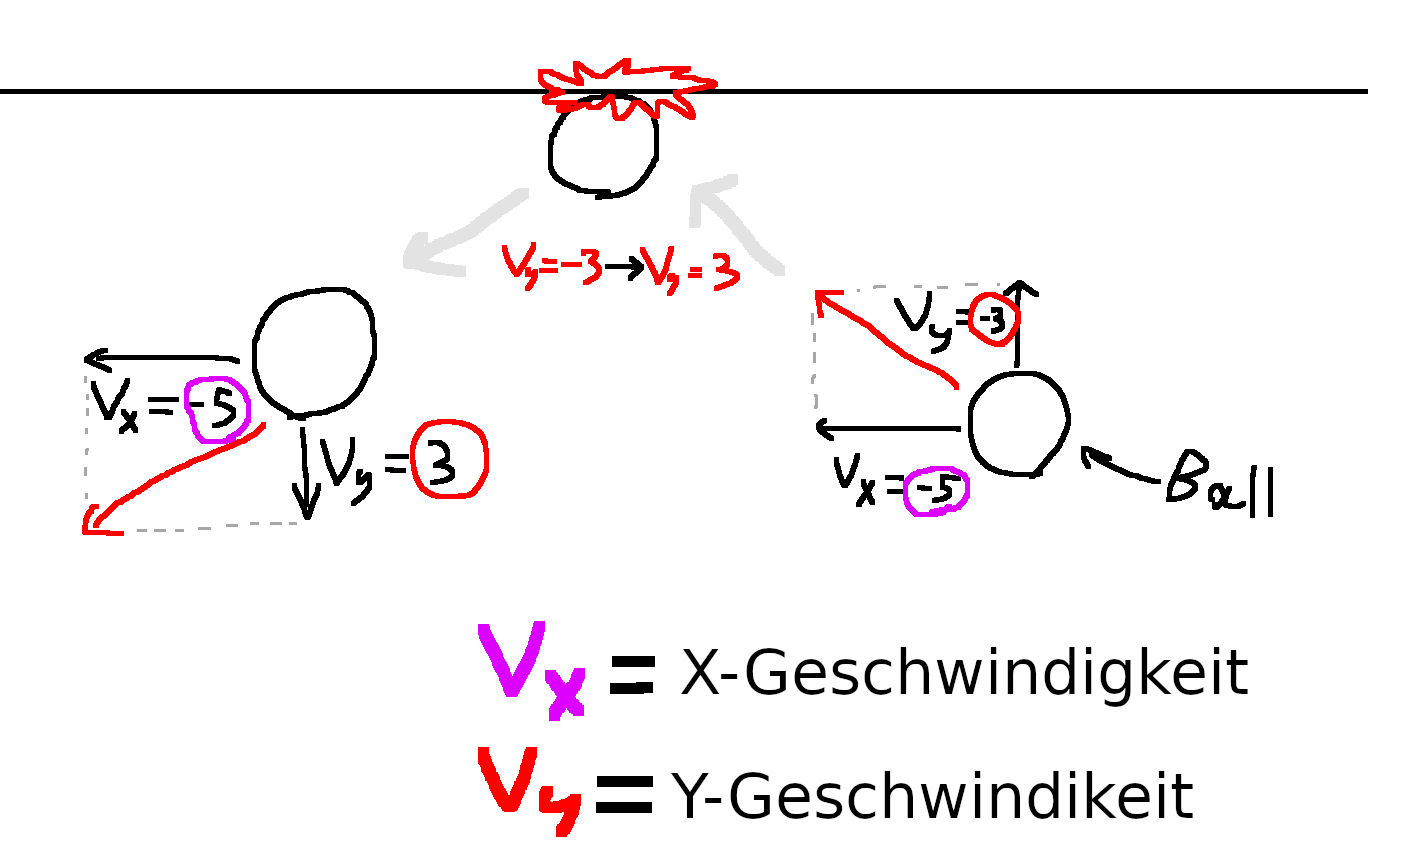 Vy=-3→Vy=3
Vy=-3
Vx=-5
Vy=3
Vx=-5
Ball
Vx = X-Geschwindigkeit
Vy = Y-Geschwindikeit